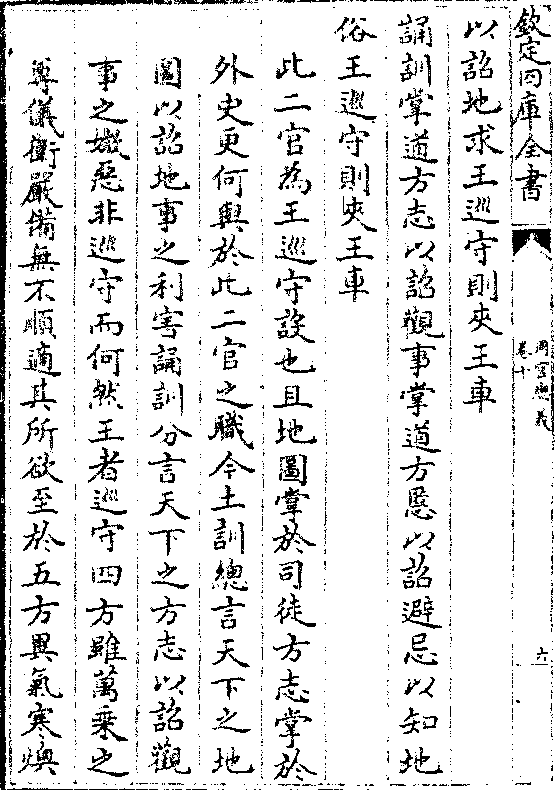 欽定四庫全書
周官總義
卷十
六
以詔地求王巡守則夾王車
誦訓掌道方志以詔觀事掌道方慝以詔避忌以知地
俗王巡守則夾王車
此二官為王巡守設也且地圖掌於司徒方志掌於
外史更何與於此二官之職今土訓總言天下之地
圖以詔地事之利害誦訓分言天下之方志以詔觀
事之媺惡非巡守而何然王者巡守四方雖萬乗之
尊儀衛嚴備無不順適其所欲至於五方異氣寒燠